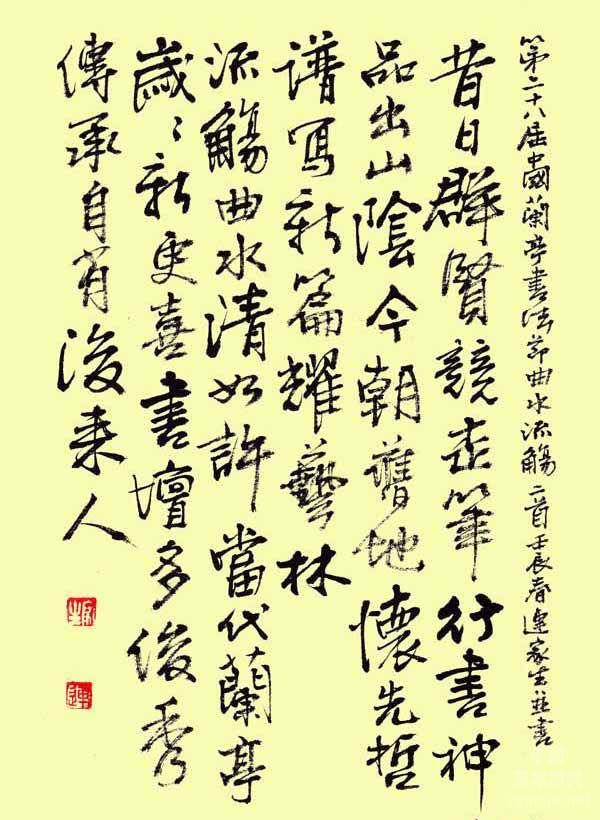 第二十八屆中國蘭亭書法節曲水流觴二首壬辰春連家生並書
昔日群賢競走筆行書神
品出山陰今朝舊地懷先哲
譜寫新篇耀藝林
流觴曲水清如許當代蘭亭
歲歲新更喜書壇多俊秀
傳承自有後來人